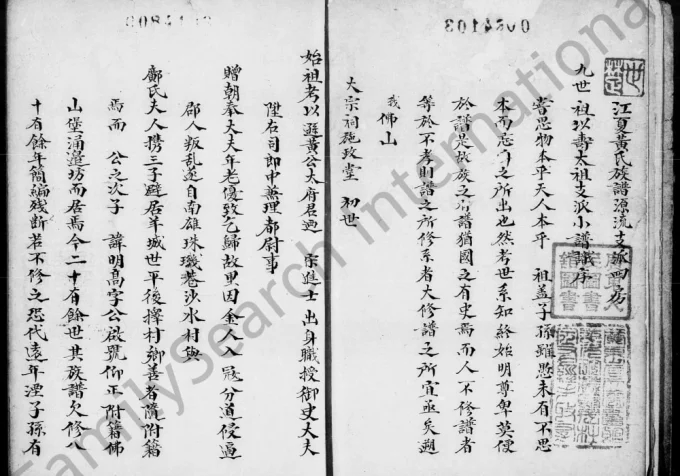 江夏黃氏族譜源流支派四房
九世祖以壽太祖支派小譜誌序
嘗思物本乎天人本乎 祖盖子孫雖愚未有不思
本而忘身之所出也然考世系知終始明尊卑莫便
於譜是故族之有譜猶國之有史焉而人不修譜者
等於不孝則譜之所修系者大修譜之所宜亟矣溯
我佛山
大宗祠施政堂 初世
始祖考以遜黃公大府君迺 宗進士出身職授御史大夫
陞右司郎中兼理都尉事
贈朝奉大夫年老優致乞歸故里因金人入寇分道侵逼
郡人叛乱遂自南雄珠璣巷沙水村與
鄺氏夫人攜三子避居羊城世平後擇村鄉善者隨附籍
焉而 公之次子 諱明高字公啟號仰正附籍佛
山堡涌邊坊而居焉今二十有餘世其族譜欠修八
十有餘年簡編残断若不修之恐代遠年湮子孫有
0084103
FamilySearch International